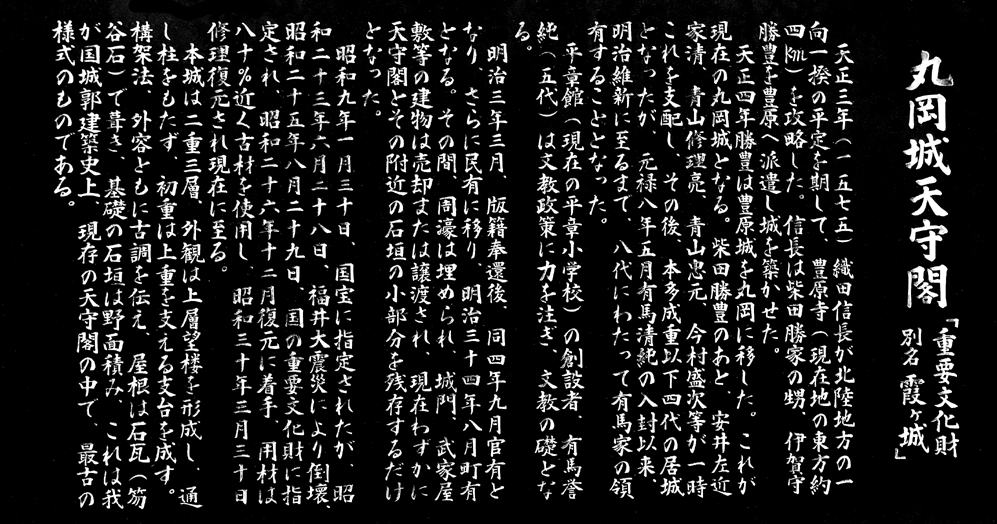 丸岡城天守閣
「重要文化財
別名 霞ヶ城」
天正三年(一五七五)織田信長が北陸地方の一
向一揆の平定を期して、豊原寺(現在地の東方約
四㎞)を攻略した。信長は柴田勝家の甥、伊賀守
勝豊を豊原へ派遣し城を築かせた。
天正四年勝豊は豊原城を丸岡に移した。これが
現在の丸岡城となる。柴田勝豊のあと、安井左近
家清、青山修理亮、青山忠元、今村盛次等が一時
これを支配し、その後、本多成重以下四代の居城
となったが、元禄八年五月有馬清純の入封以来、
明治維新に至るまで、八代にわたって有馬家の領
有することとなった。
平章館(現在の平章小学校)の創設者、有馬誉
純(五代)は文教政策に力を注ぎ、文教の礎とな
る。
明治三年三月、版籍奉還後、同四年九月官有と
なり、さらに民有に移り、明治三十四年八月町有
となる。その間、周濠は埋められ、城門、武家屋
敷等の建物は売却または譲渡され、現在わずかに
天守閣とその附近の石垣の小部分を残存するだけ
となった。
昭和九年一月三十日、国宝に指定されたが、昭
和二十三年六月二十八日、福井大震災により倒壊、
昭和二十五年八月二十九日、国の重要文化財に指
定され、昭和二十六年十二月復元に着手、用材は
八十%近く古材を使用し、昭和三十年三月三十日
修理復元され現在に至る。
本城は二重三層、外観は上層望楼を形成し、通
し柱をもたず、初重は上重を支える支台を成す。
構架法、外容ともに古調を伝え、屋根は石瓦(笏
谷石)で葺き、基礎の石垣は野面積み、これは我
が国城郭建築史上、現存の天守閣の中で、最古の
様式のものである。